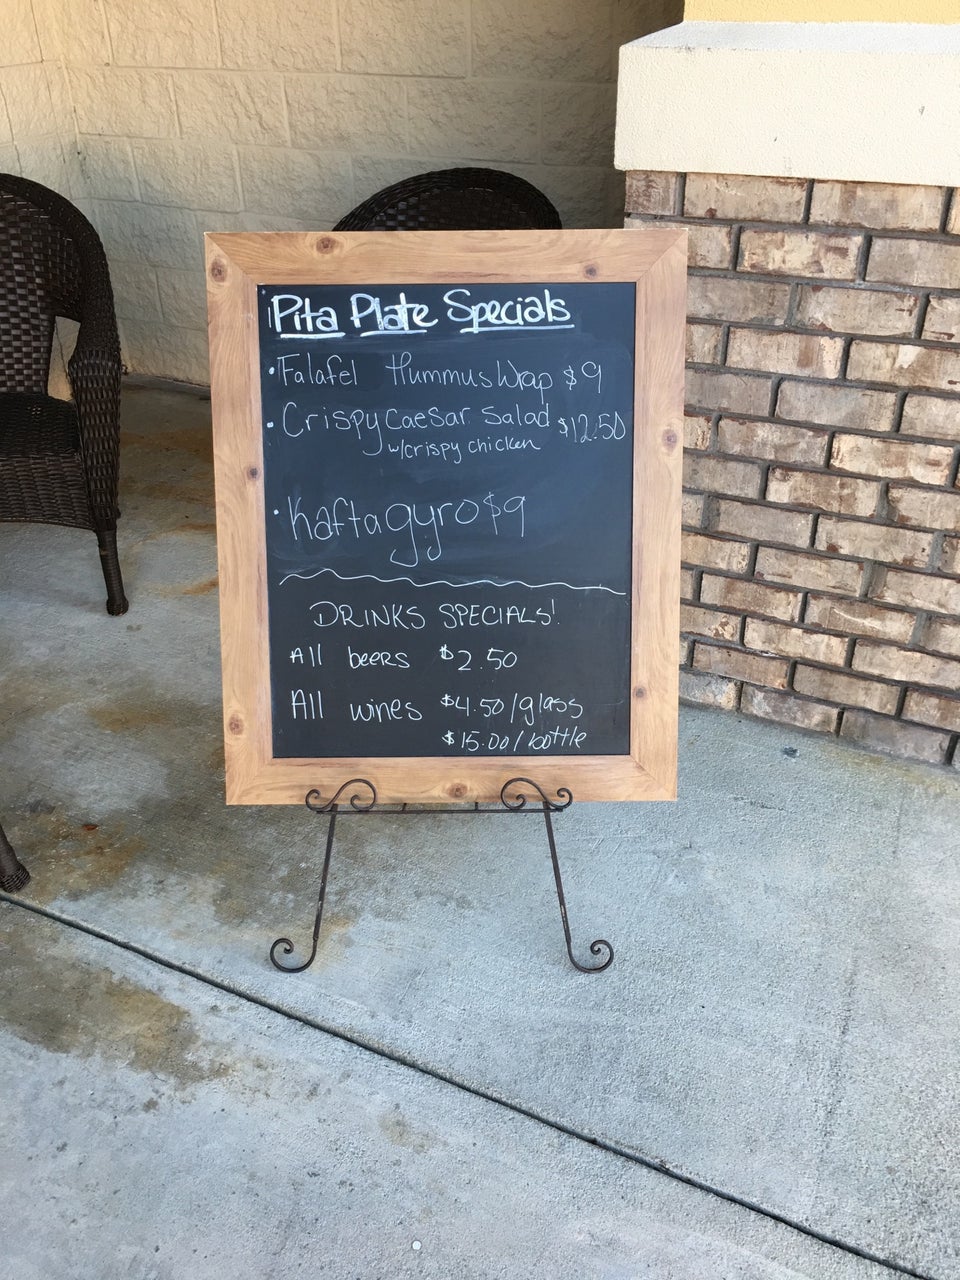 Pita Plate Specials
• Falafel Hummus Wrap $9
• Crispy Caesar Salad $12.50
w/crispy chicken
• Kafta gyro $9
DRINKS SPECIALS!
All beers $2.50
All wines $4.50/glass
$15.00/bottle